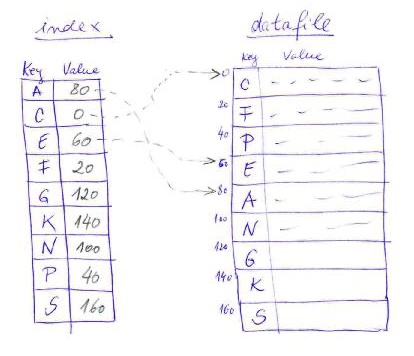 index
datafile
Key Value
A 80
C 0
E 60
F 20
G 120
K 140
N 100
P 40
S 160
Key Value
0 C
20 F
40 P
60 E
80 A
100 N
120 G
140 K
160 S